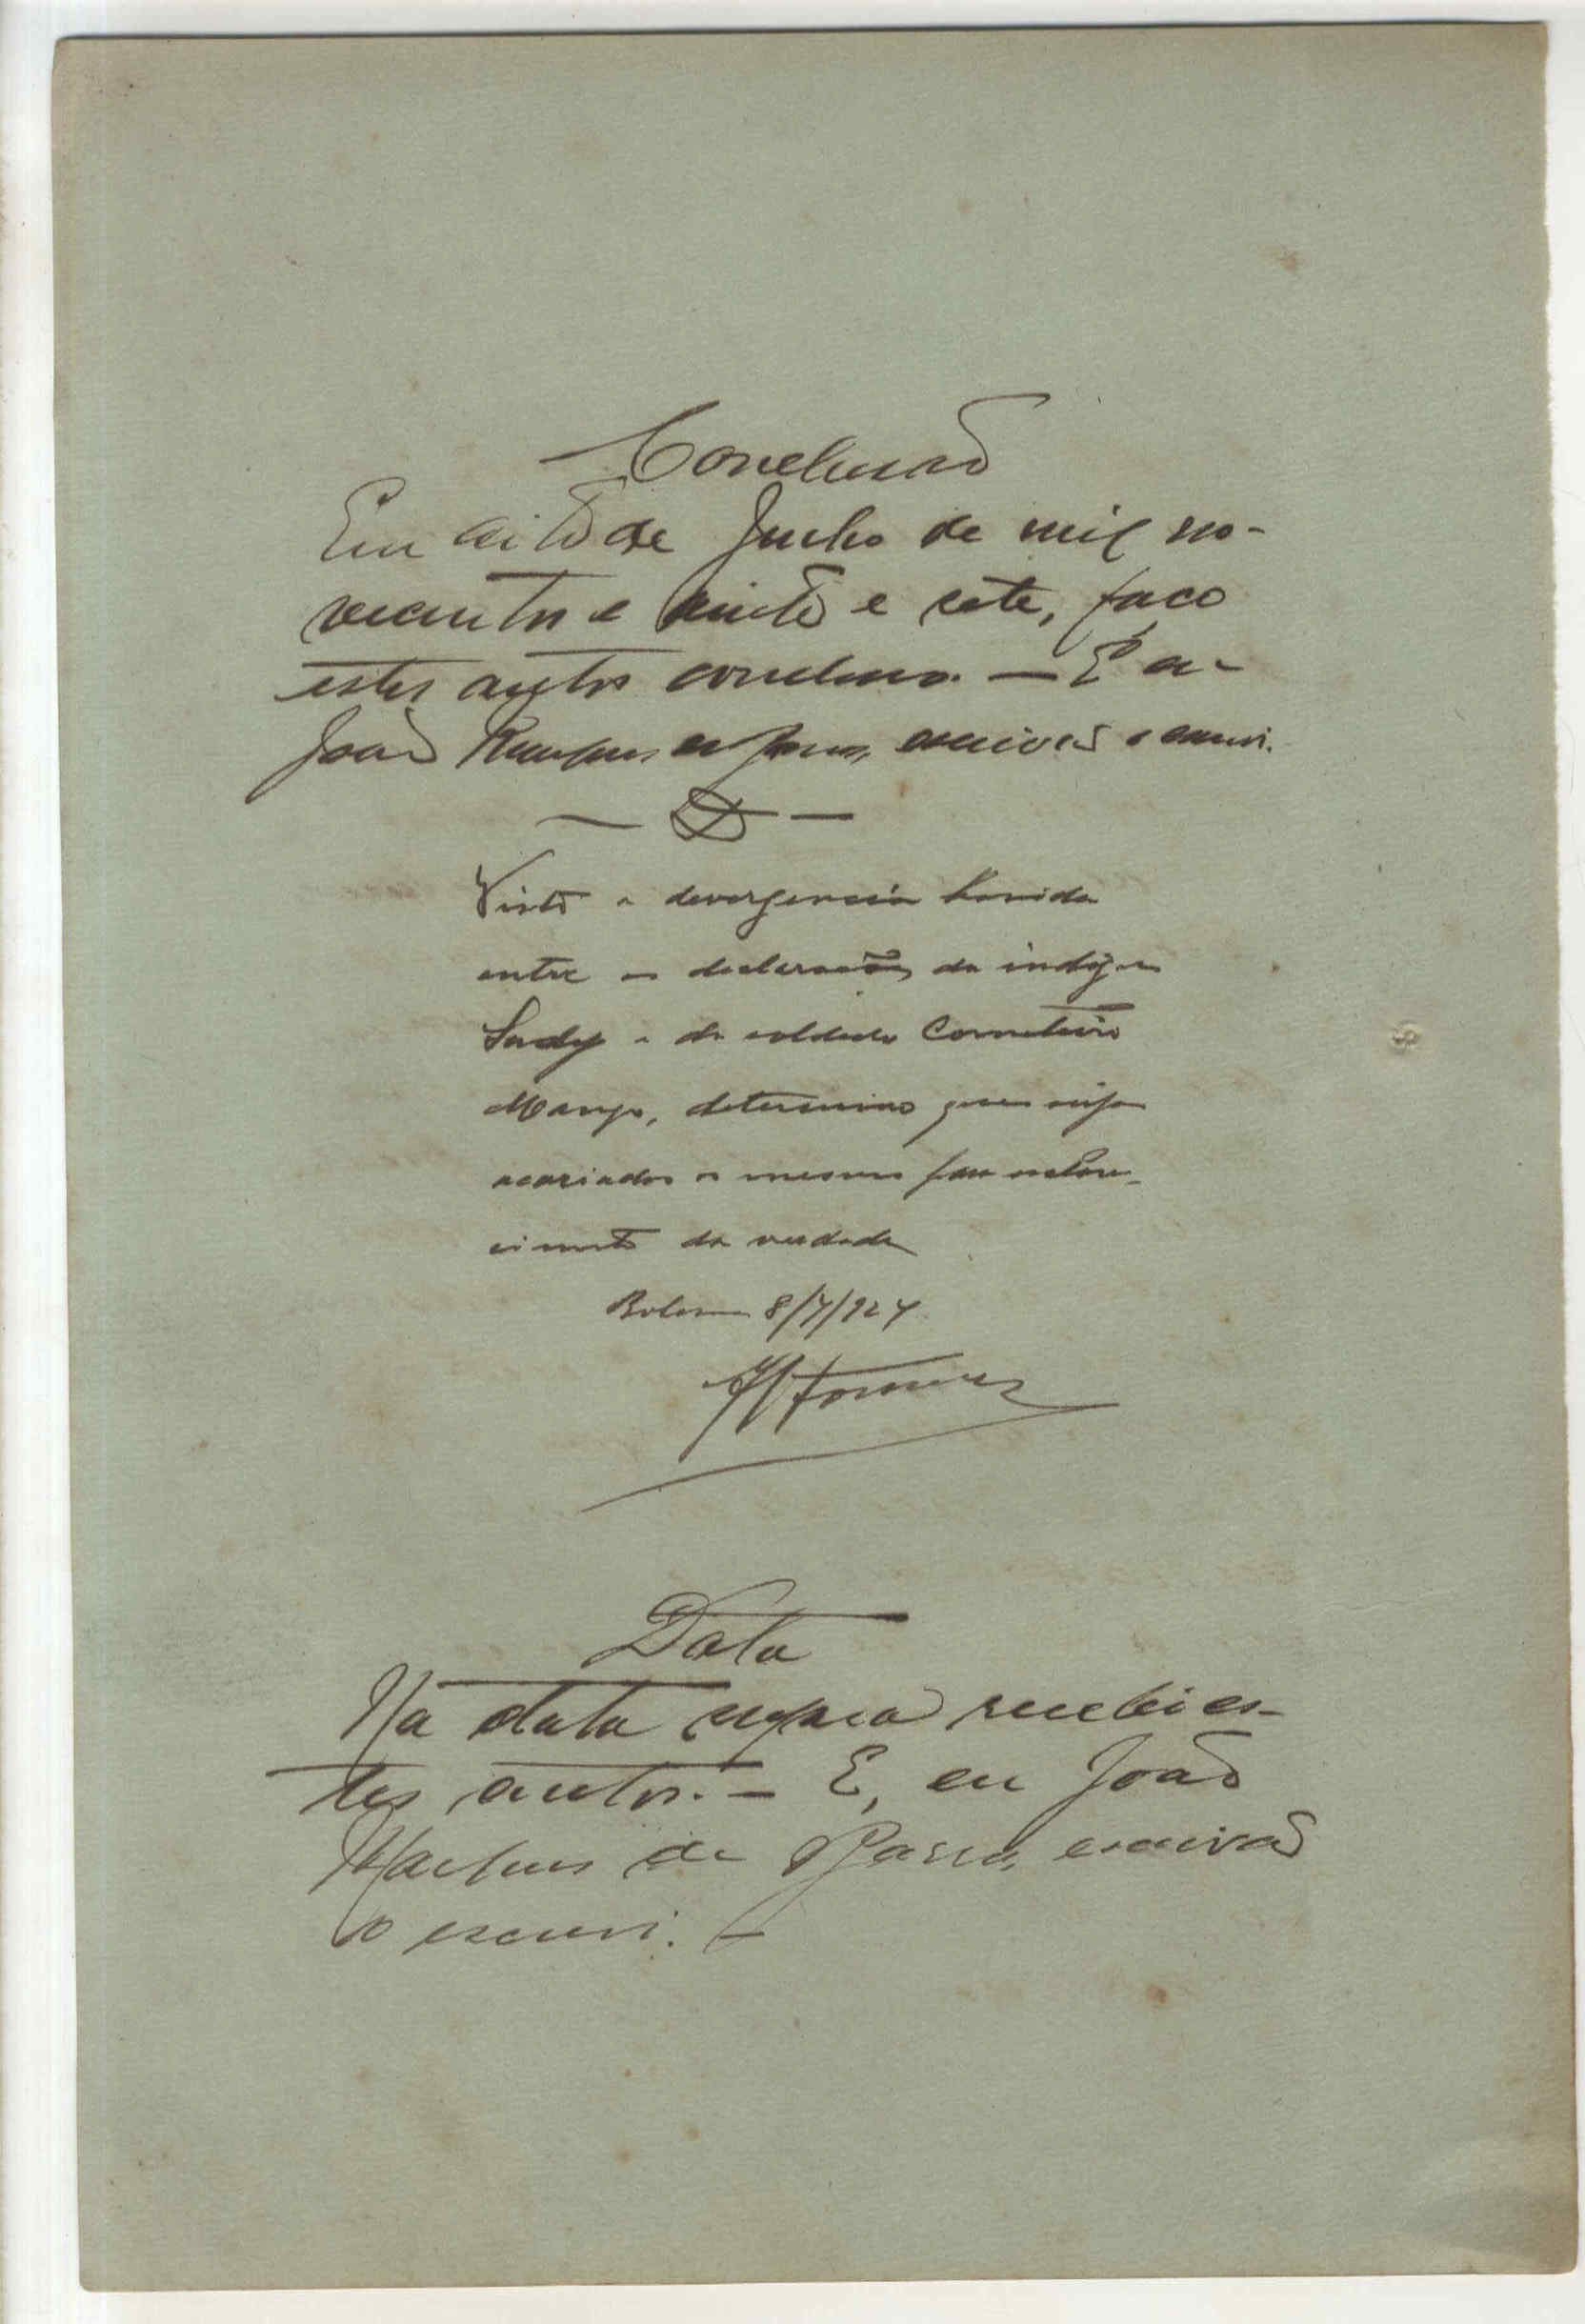 Conclusão
Em oito de Julho de mil no-
vecentos e vinte e sete, faço
estes autos conclusos. — E eu
João Marques de Barros, escrivão o escrevi.
Visto a devergencia havida
entre as declarações da indigena
Sady e do soldado Corneteiro
determino que sejam
acariados os mesmos para esclare-
cimento da verdade
Bolama 8/7/927
Data
Na data supra recebi es-
tes autos. — E, eu João
Marques de Barros, escrivão
o escrevi. —